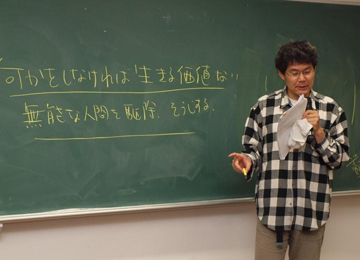 何かをしなければ生きる価値ない
無能な人間を駆除、そうじする。